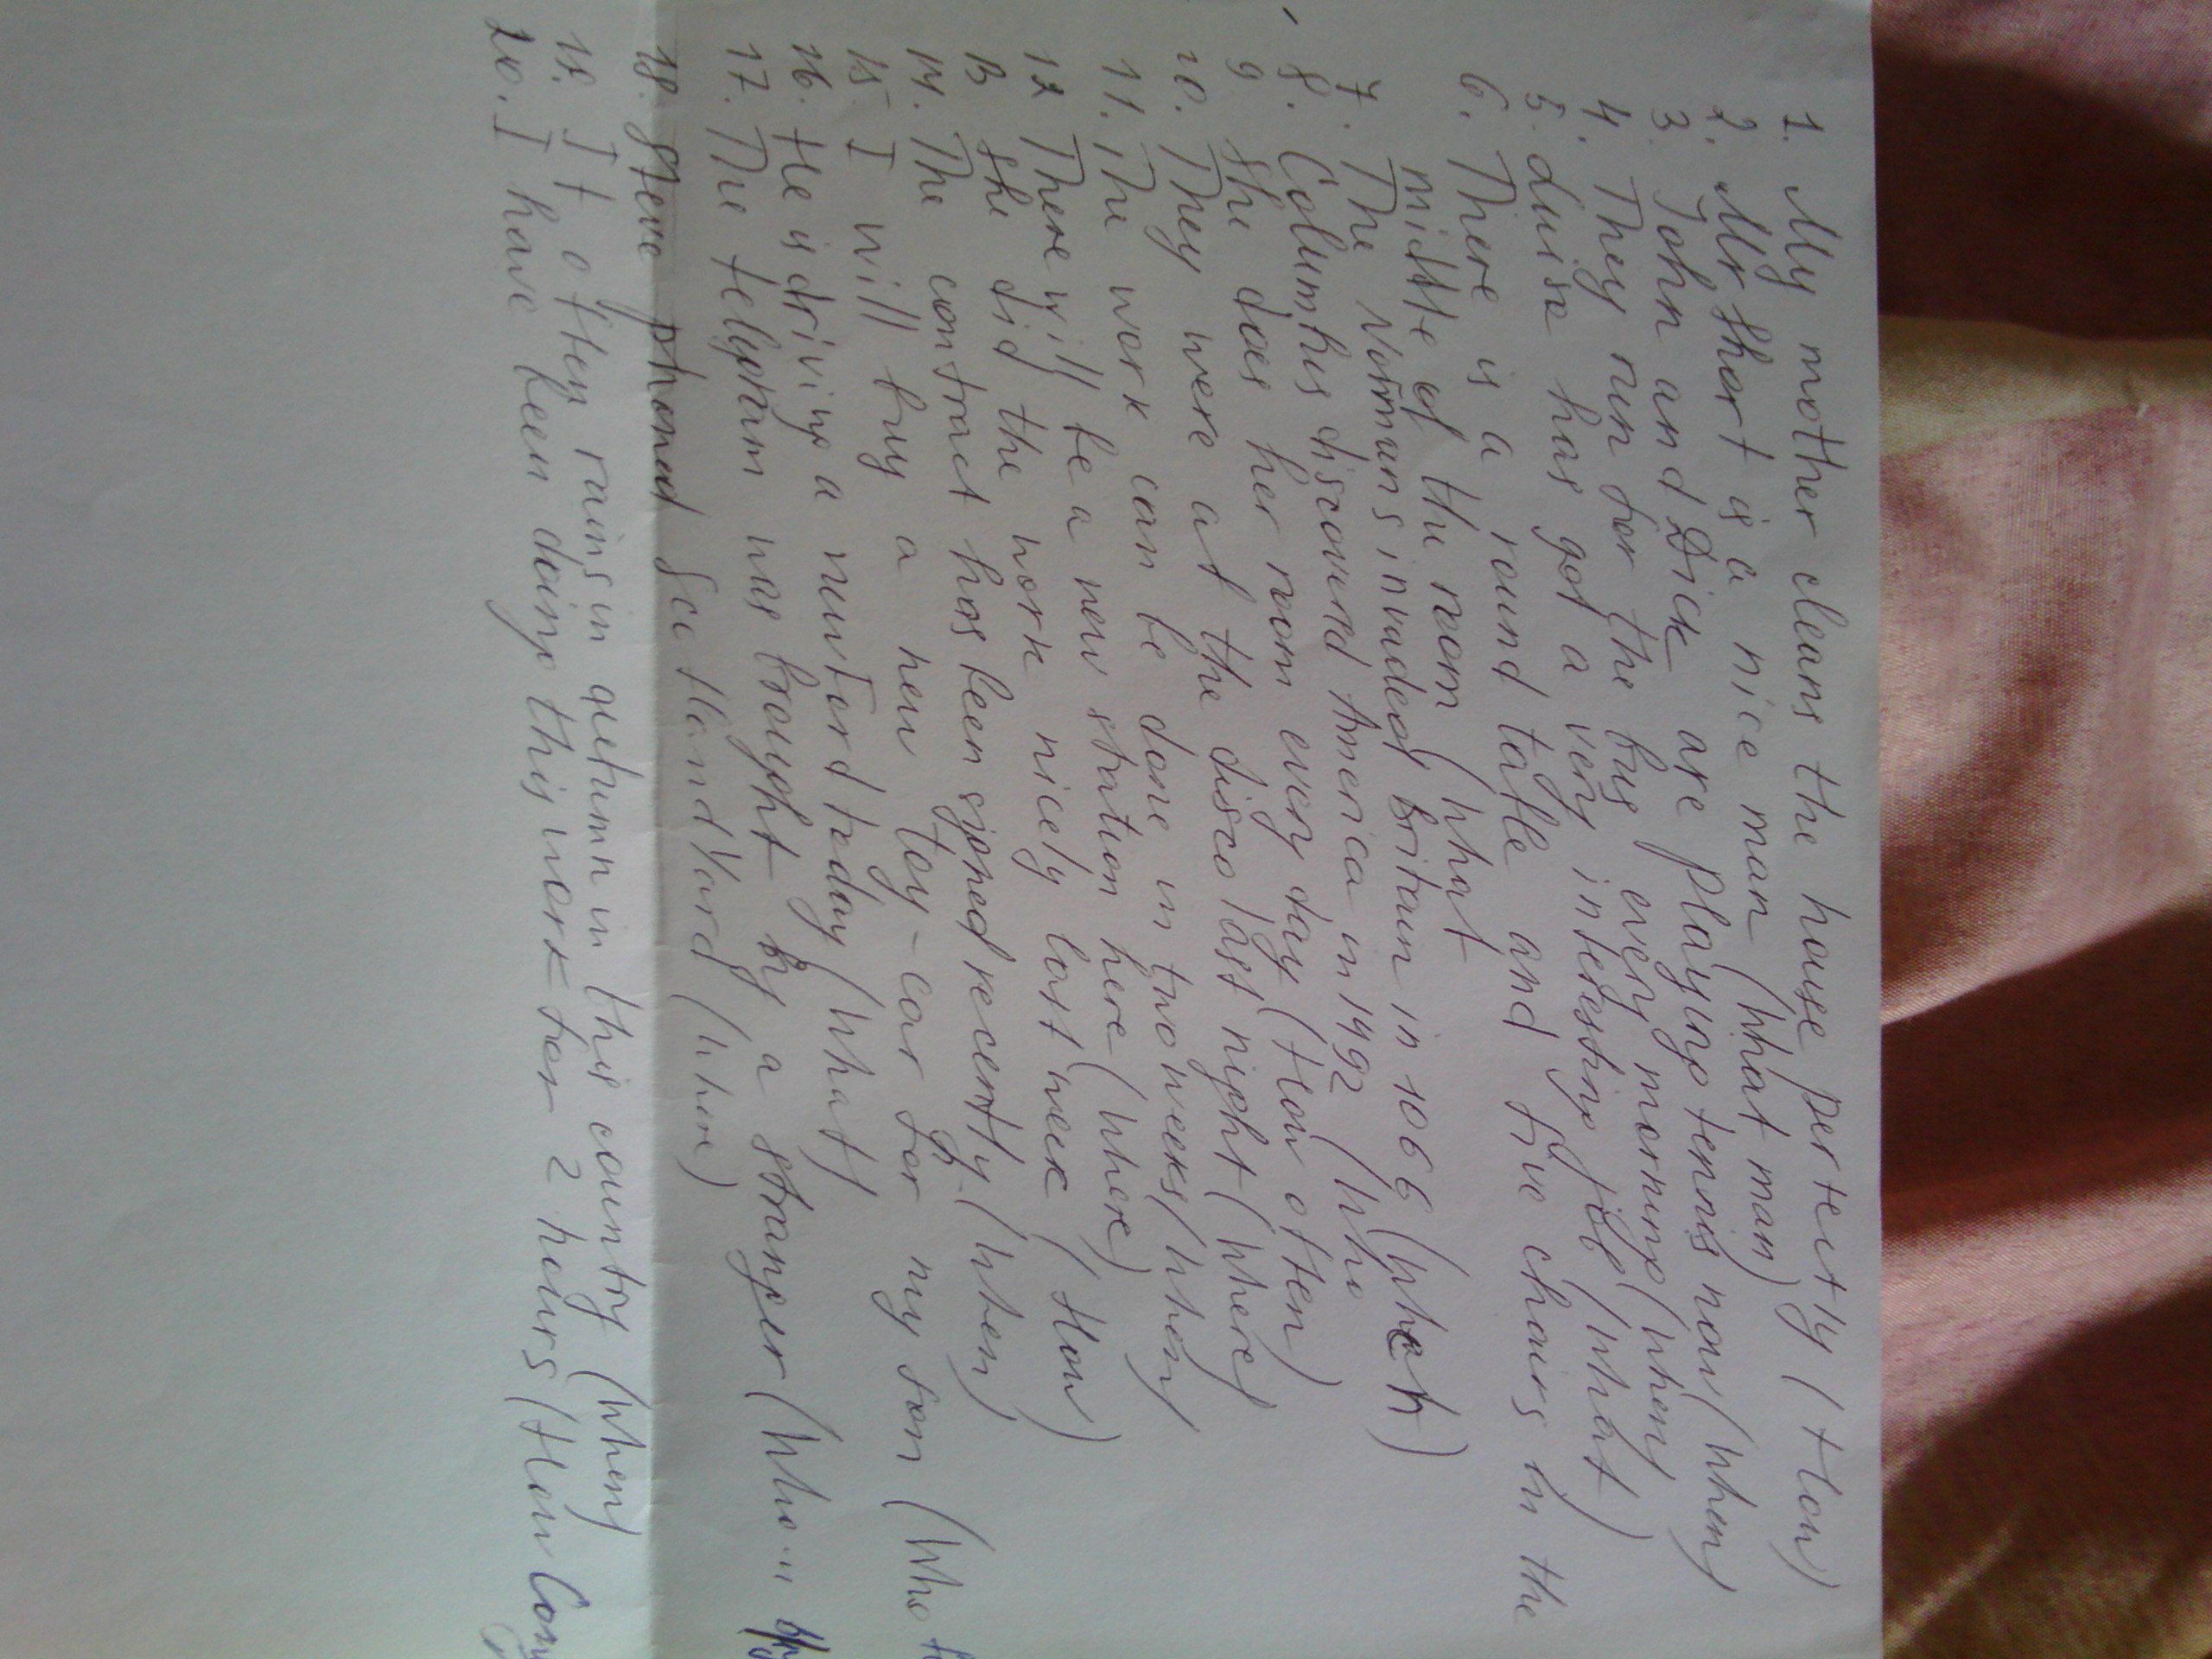 1. My mother cleans the house perfectly (How)
2. Mr Short is a nice man (What man)
3. John and Dick are playing tennis now (When)
4. They run for the bus every morning (When)
5. Luise has got a very interesting job (What)
6. There is a round table and five chairs in the
middle of the room (What
7. The Normans invaded Britain in 1066 (when)
8. Columbus discovered America in 1492 (Who
9 She does her room every day (How often)
10. They were at the disco last night (Where)
11. The work can be done in two weeks (When)
12 There will be a new station here (Where)
13 She did the work nicely last week (How)
14. The contract has been signed recently (When)
15 I will buy a new toy-car for my son (Who f
16. He is driving a new Ford today (What)
17. The telegram was brought by a stranger (Whom by
18. Steve phoned Scotland Yard (where)
18. It often rains in autumn in this country (When)
20. I have been doing this work for 2 hours (How long